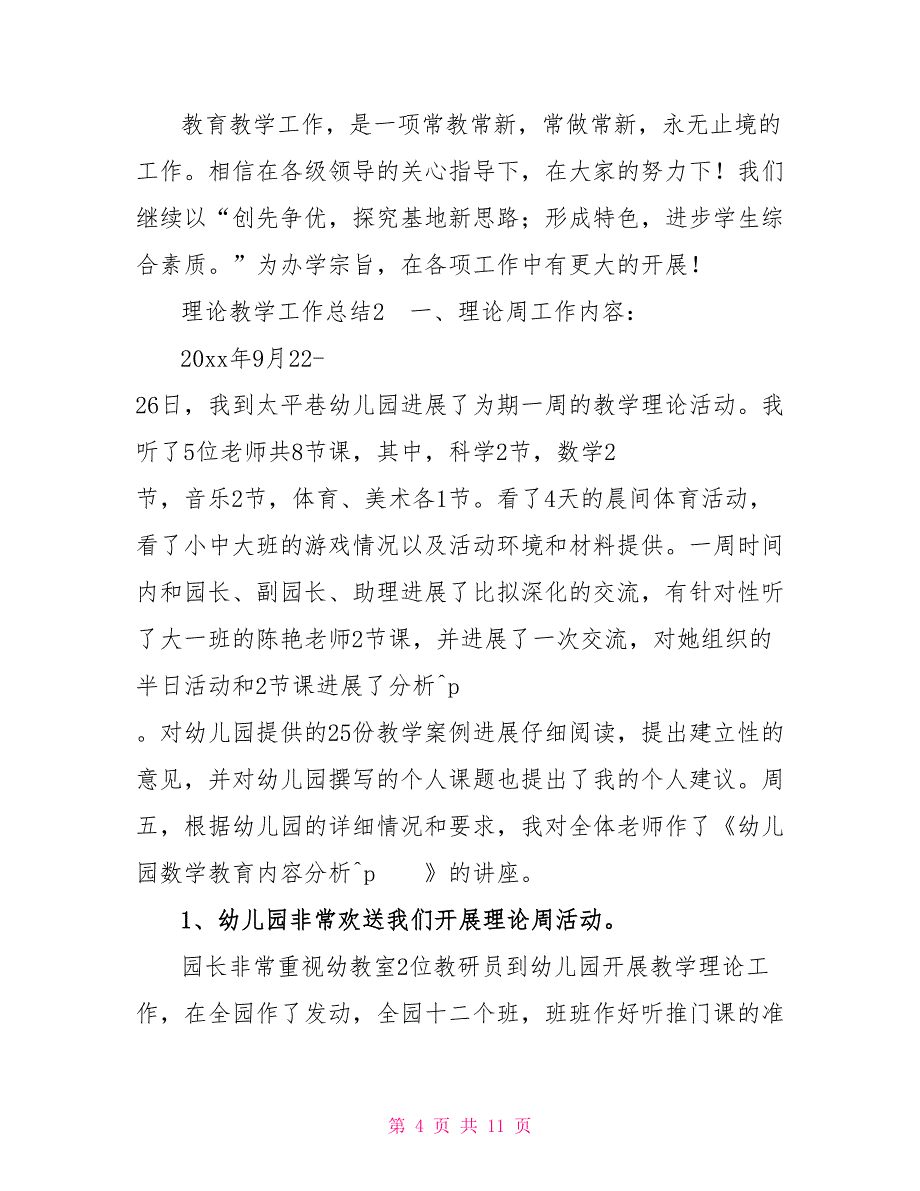 教育教学工作，是一项常教常新，常做常新，永无止境的
工作。相信在各级领导的关心指导下，在大家的努力下！我们
继续以“创先争优，探究基地新思路；形成特色，进步学生综
合素质。”为办学宗旨，在各项工作中有更大的开展！
理论教学工作总结2　一、理论周工作内容：
20xx年9月22-
26日，我到太平巷幼儿园进展了为期一周的教学理论活动。我
听了5位老师共8节课，其中，科学2节，数学2
节，音乐2节，体育、美术各1节。看了4天的晨间体育活动，
看了小中大班的游戏情况以及活动环境和材料提供。一周时间
内和园长、副园长、助理进展了比拟深化的交流，有针对性听
了大一班的陈艳老师2节课，并进展了一次交流，对她组织的
半日活动和2节课进展了分析^p
。对幼儿园提供的25份教学案例进展仔细阅读，提出建立性的
意见，并对幼儿园撰写的个人课题也提出了我的个人建议。周
五，根据幼儿园的详细情况和要求，我对全体老师作了《幼儿
园数学教育内容分析^p　　》的讲座。
1、幼儿园非常欢送我们开展理论周活动。
园长非常重视幼教室2位教研员到幼儿园开展教学理论工
作，在全园作了发动，全园十二个班，班班作好听推门课的准
第 4 页 共 11 页